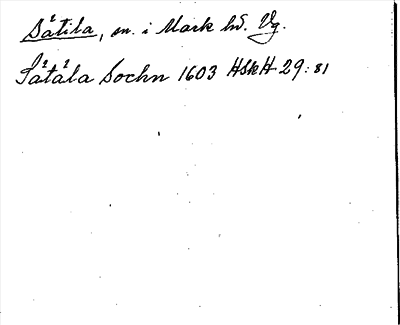 Sätila, sn. i Mark hd. Vg.
Sätäla Sochn 1603 HSkH 29:81